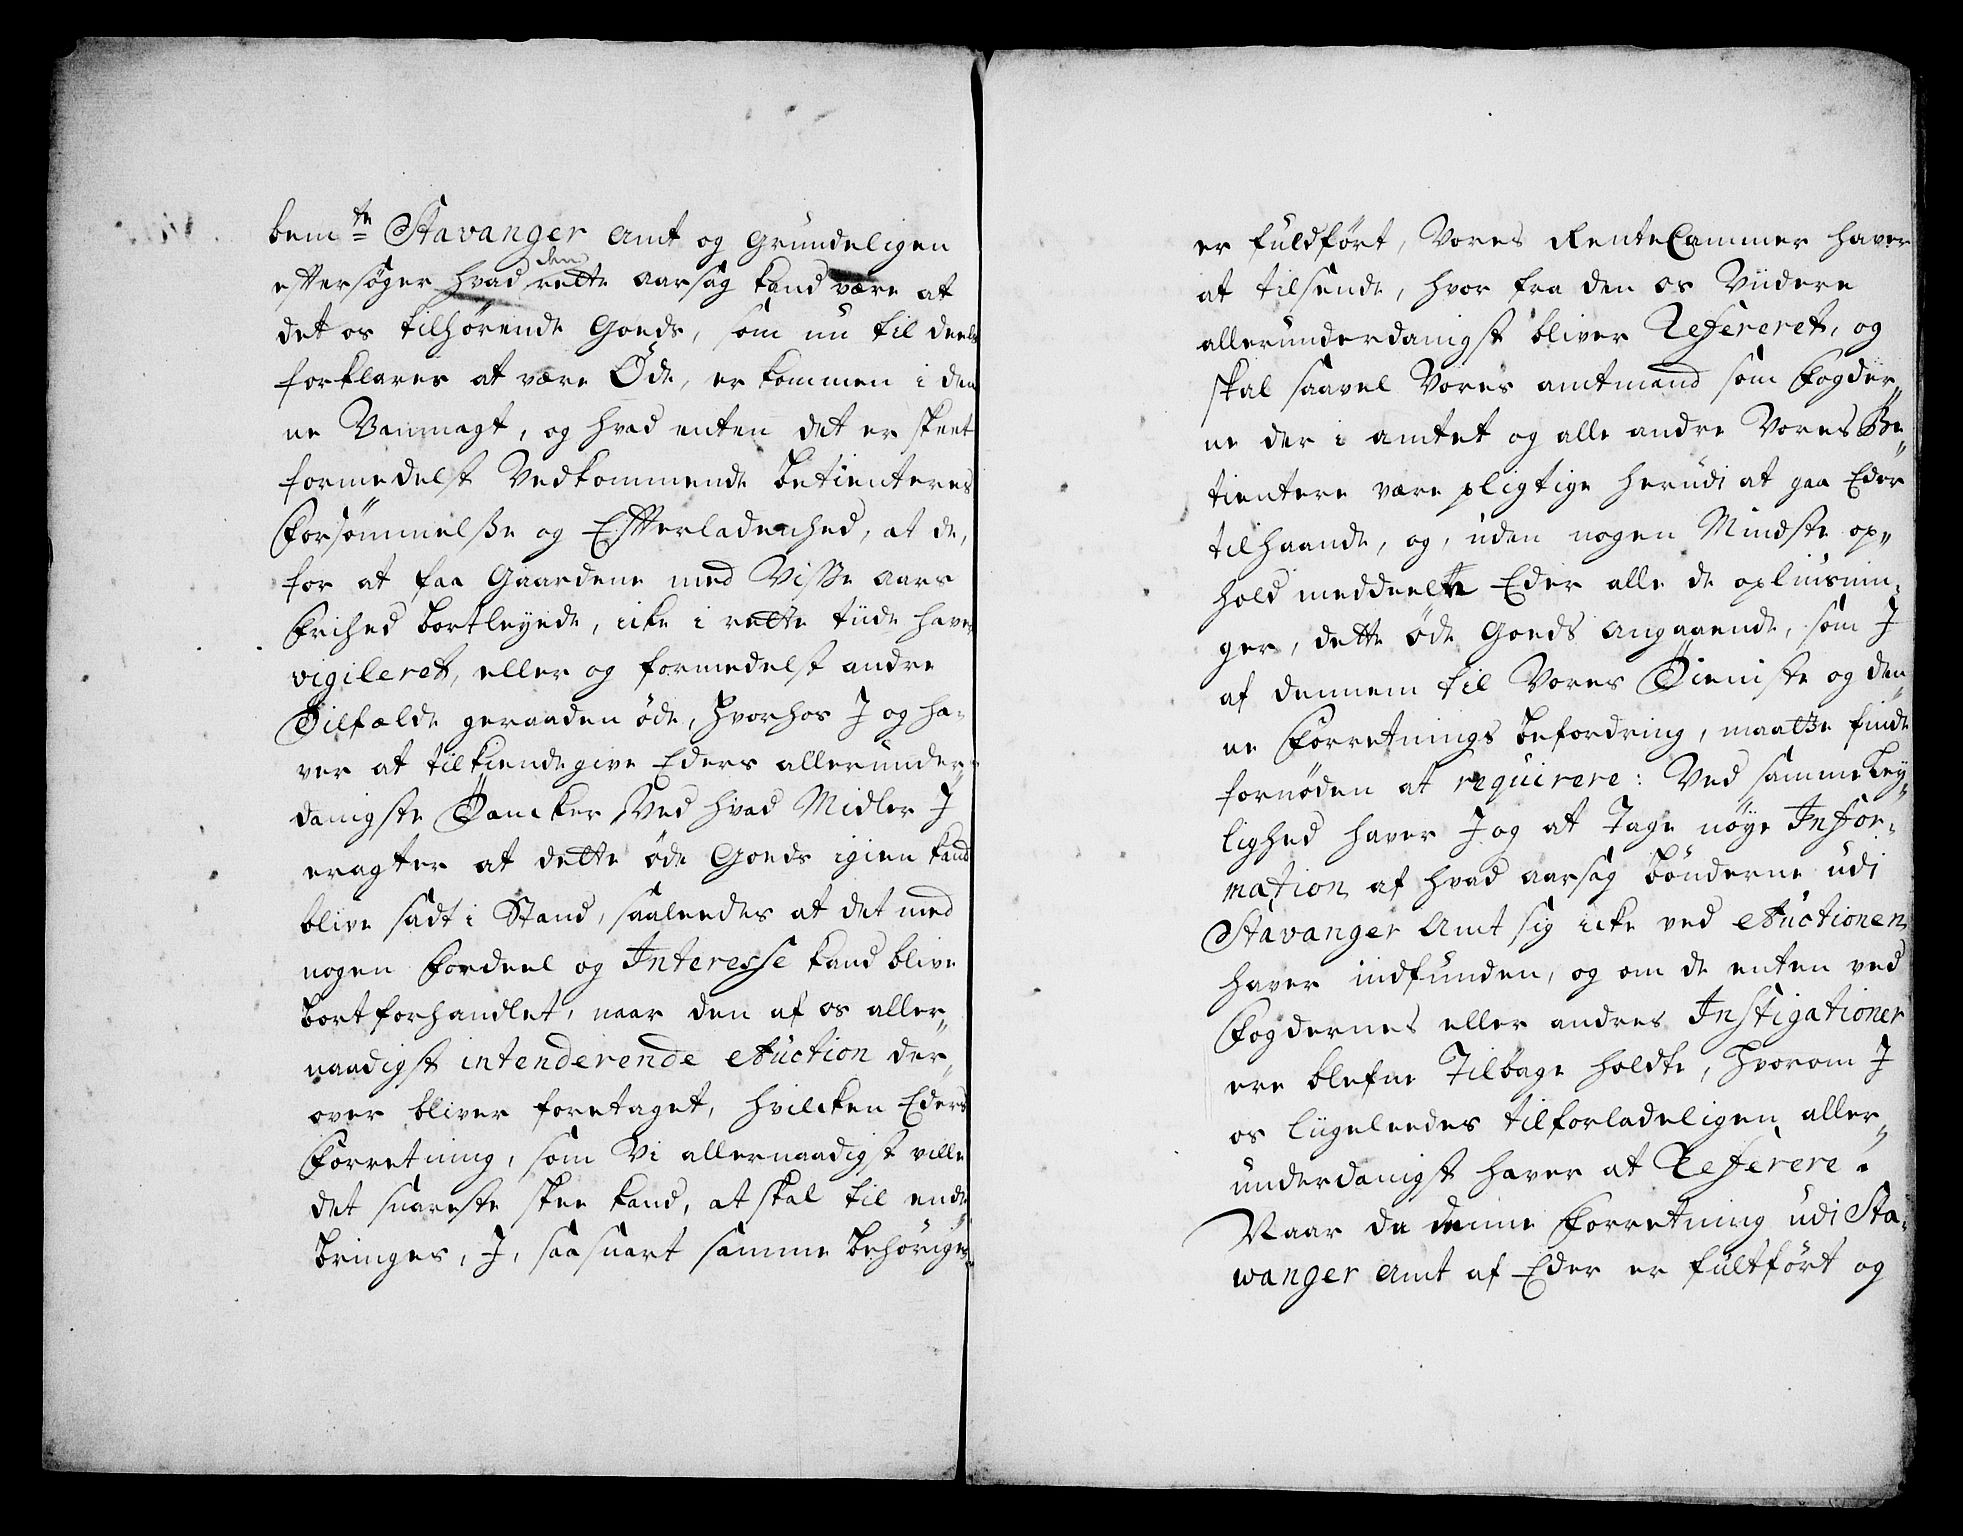 bem^te Stavanger Amt og Grundeligen
eftersøger hvad den rette aarsag kand være at
det os tilhørende Goeds, som nu til deels
forklares at være Öde, er kommen i den
ne Vanmagt, og hvad enten det er skeet
formedelst Vedkommende betienteres
Forsömmelsse og Efterladenhed, at de,
for at faa Gaardene med Visse aars
Frihed bortleyede, icke i rette tiide haver
vigileret, eller og formedelst andre
Tilfælde geraaden öde, hvorhos J og ha-
ver at tilkiende give Eders allerunder-
danigste Tancker Ved hvad Midler J
eragter at dette öde Goeds igien kand
blive sadt i Stand, saaleedes at det med
nogen Fordeel og Interesse kand blive
bortforhandlet, naar den af os aller-
naadigst intenderende Auction der-
over bliver foretaget, hvilcken Eders
Forretning, som Vi allernaadigst ville
det snareste skee kand, at skal til ende
bringes, J, saasnart samme behörigen
er fuldfört, Vores RenteCammer haver
at tilsende, hvor fra den os Viidere
allerunderdanigst bliver Refereret, og
skal saavel Vores amtmand som Fogder-
ne der i amtet og alle andre Vores Be-
tientere være pligtige herudi at gaa Eder
tilhaande, og, uden nogen Mindste op-
hold meddeele Eder alle de opliusnin-
ger, dette öde Goeds angaaende, som J
af dennem til Vores Tieniste og den-
ne Forretnings befordring, maatte finde
fornöden at requirere: Ved samme Ley-
lighed haver J og at Tage nöye Infor-
mation af hvad aarsag bönderne udi
Stavanger Amt sig icke ved Auctionen
haver indfunden, og om de enten ved
Fogdernes eller andres Instigationer
ere blefne Tilbage holdte, hvorom J
os liigeleedes tilforladeligen aller-
underdanigst haver at Referere.
Naar da denne Forretning udi Sta-
wanger Amt af Eder er fultfört og